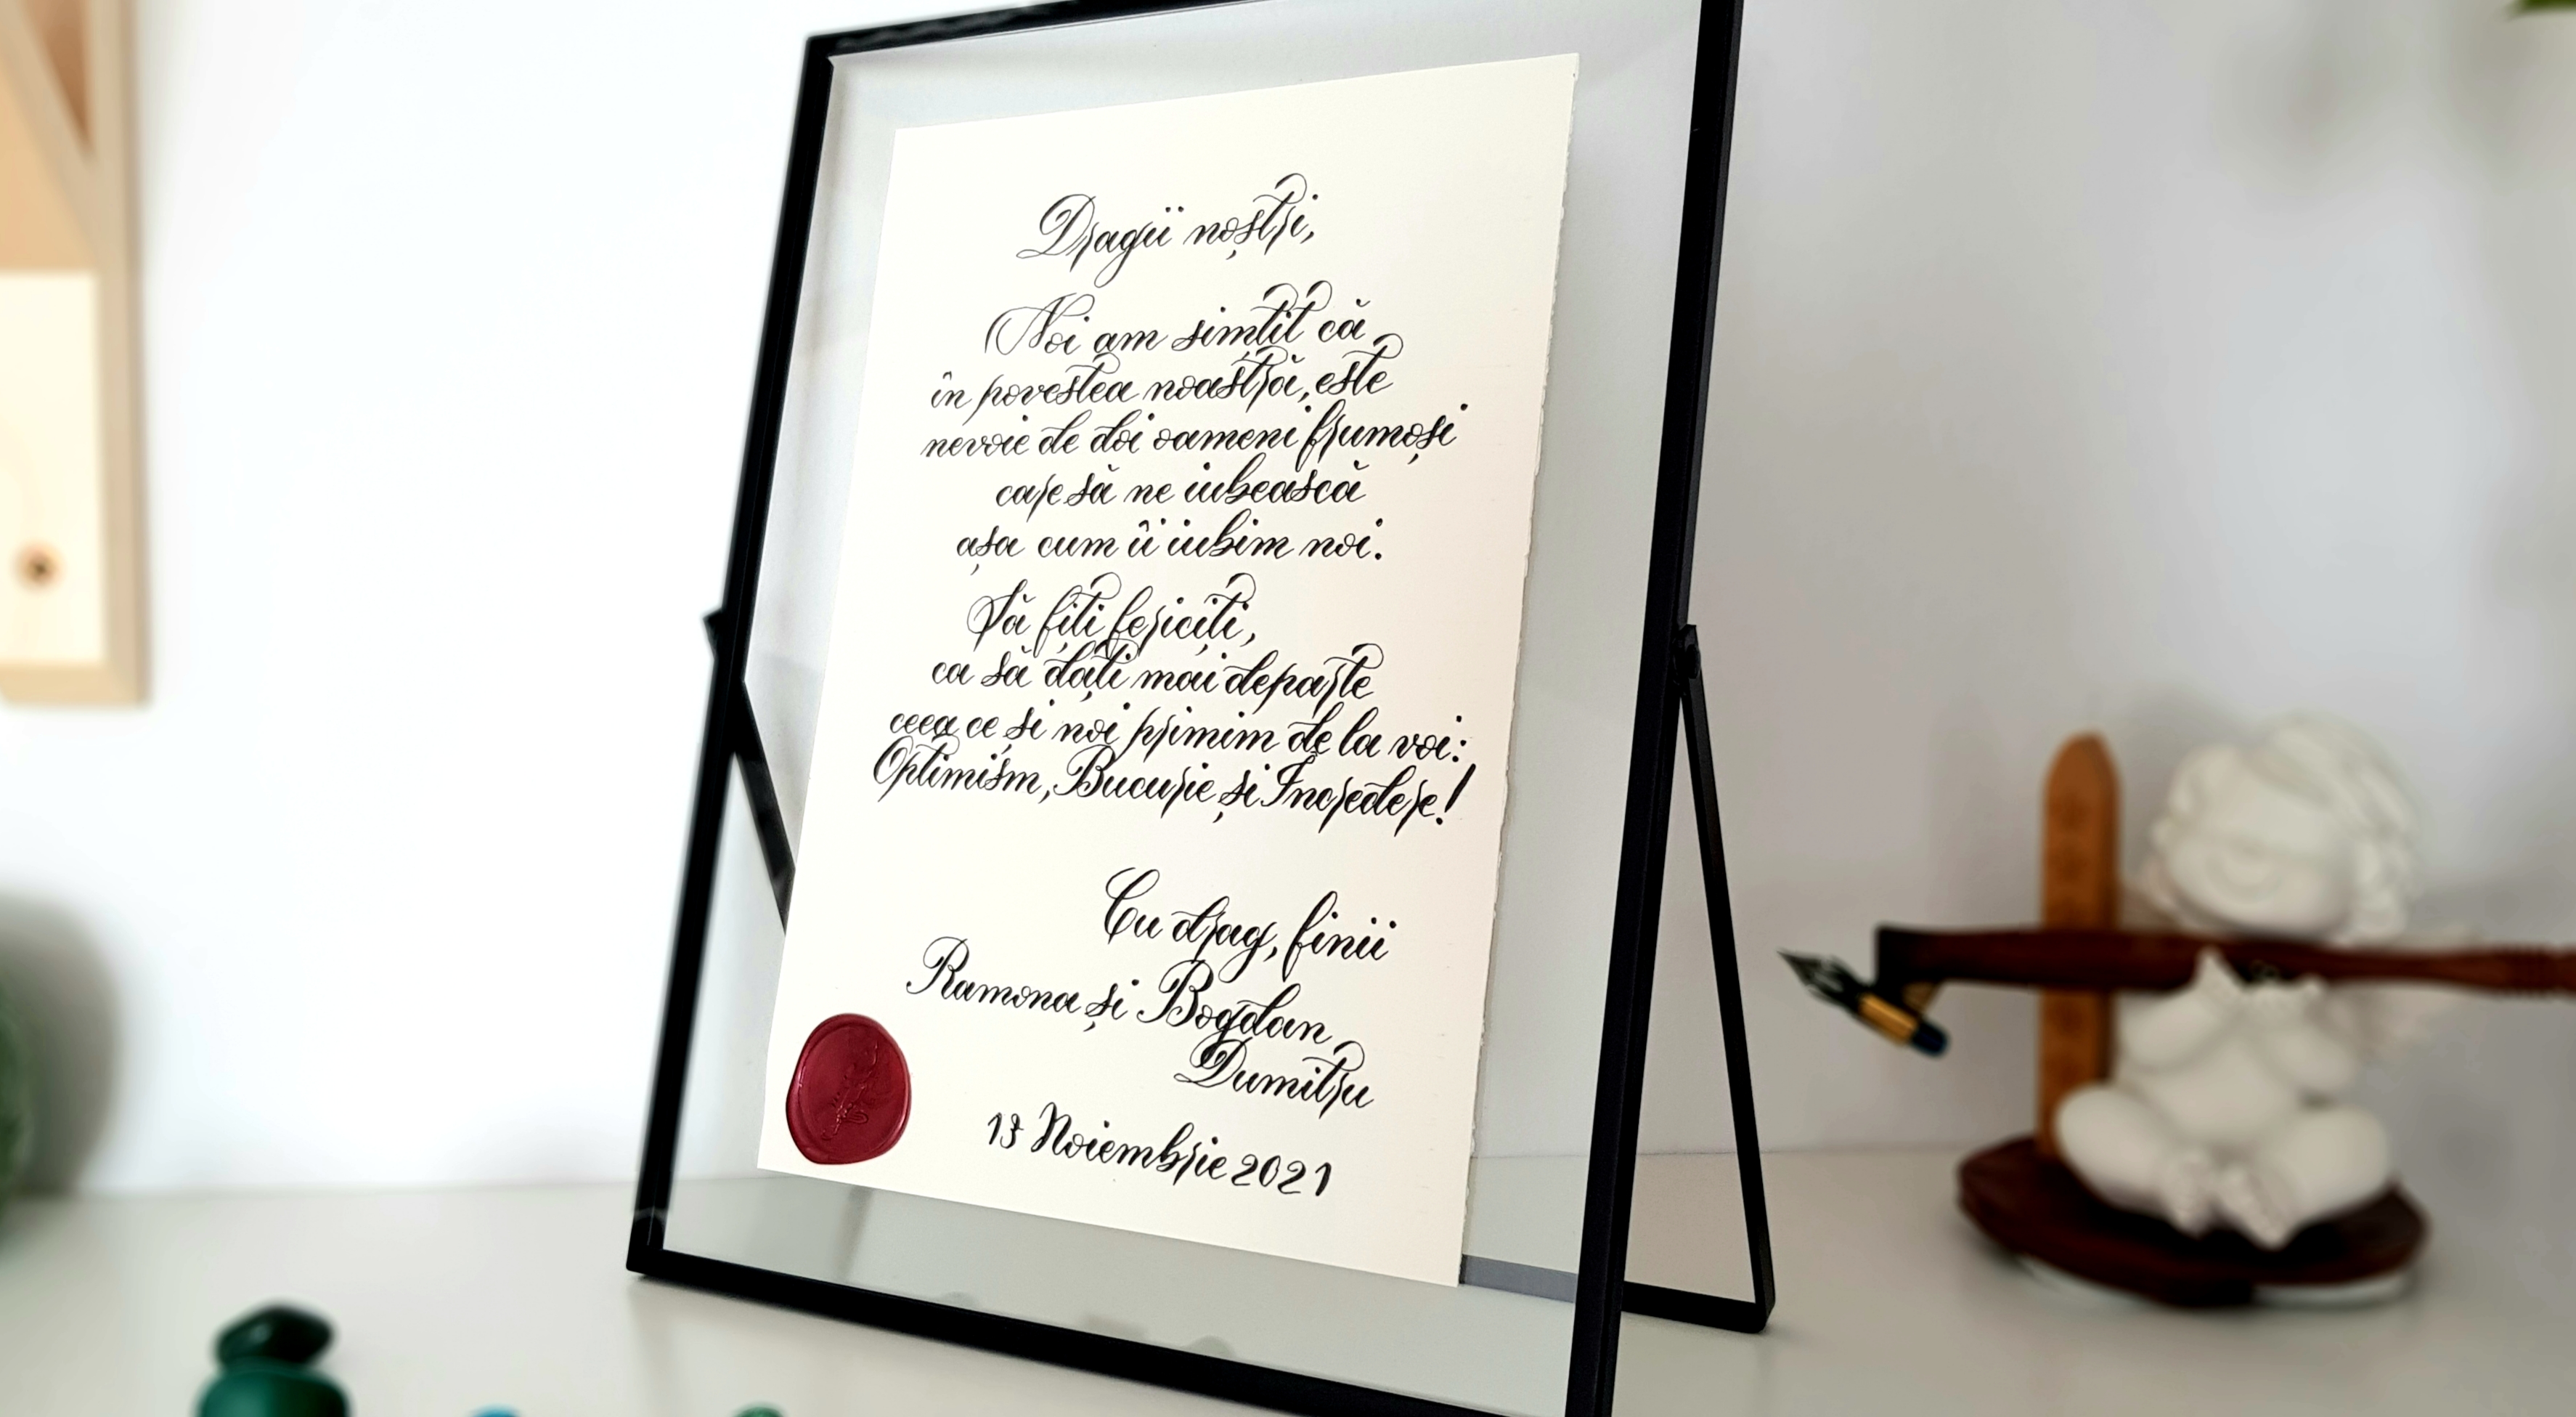 Dragii noștri,
Noi am simțit că
în povestea noastră, este
nevoie de doi oameni frumoși
care să ne iubească
așa cum îi iubim noi.
Să fiți fericiți,
ca să dați mai departe
ceea ce și noi primim de la voi:
Optimism, Bucurie și Încredere!
Cu drag, finii
Ramona și Bogdan
Dumitru
13 Noiembrie 2021